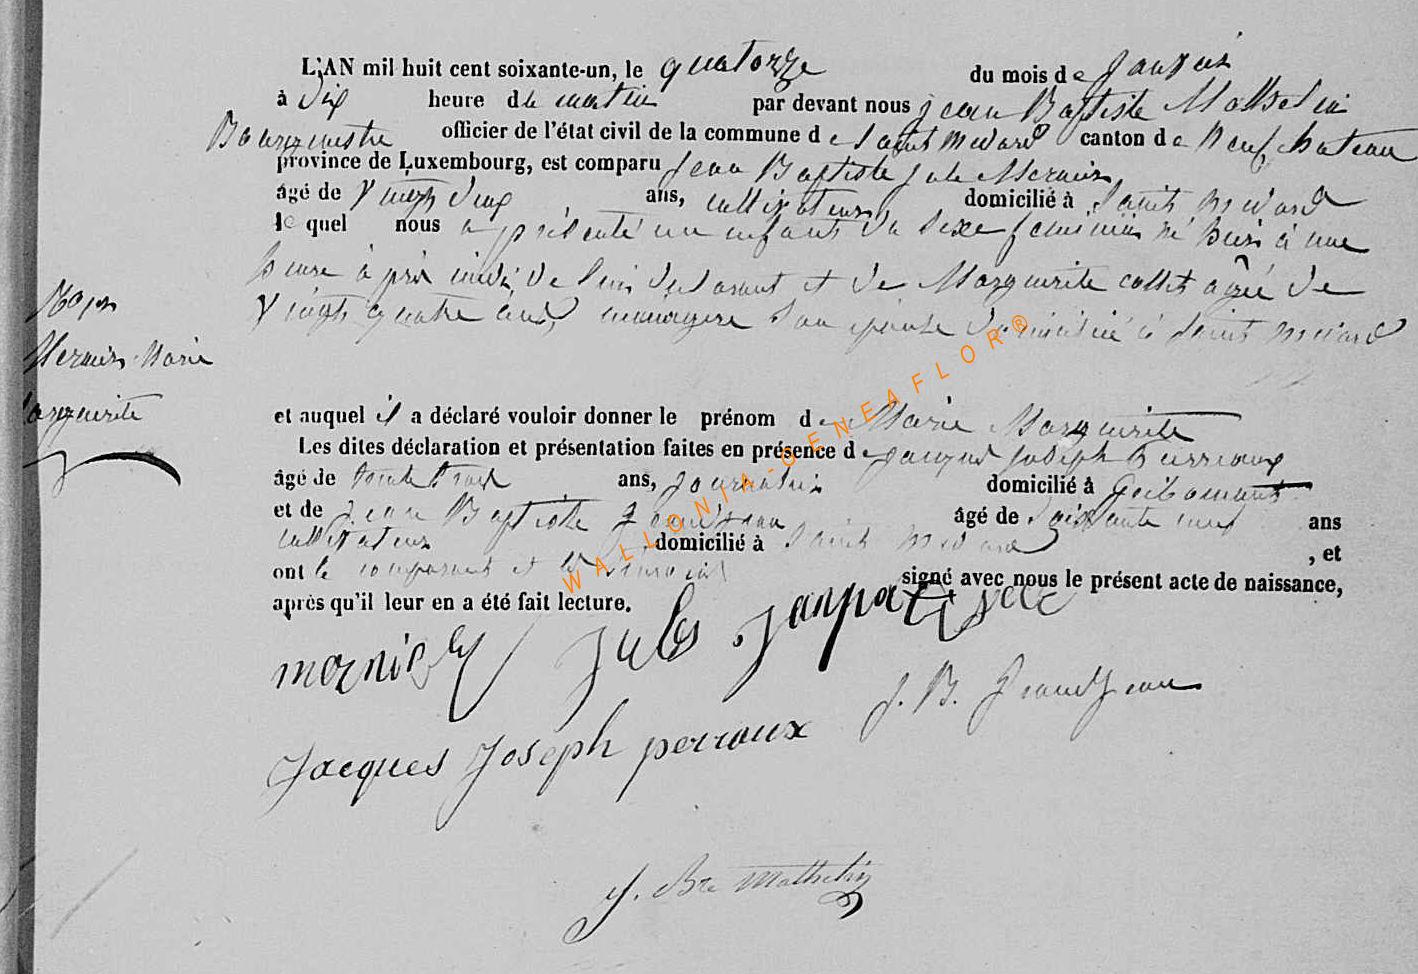 L'AN mil huit cent soixante-un, le quatorze du mois de janvier
à dix heure du matin par devant nous jean Baptiste Mathelin
Bourgmestre officier de l'état civil de la commune de Saint medard canton de Neufchateau
province de Luxembourg, est comparu Jean Baptiste Jule Mernier
âgé de vingt cinq ans, cultivateur domicilié à Saint medard
le quel nous a présenté un enfant du sexe feminin né hier à une
heure à près midi de lui declarant et de Marguerite collet agée de
vingt quatre ans, ménagere son epouse domicilié à Saint medard
Mernier Marie
Marguerite
et auquel il a déclaré vouloir donner le prénom de Marie Marguerite
Les dites déclaration et présentation faites en présence de jacques joseph Perraux
âgé de ans, journalier domicilié à
et de Jean Baptiste Grandjean âgé de soixante neuf ans
cultivateur domicilié à Saint medard , et
ont le comparant et les signé avec nous le présent acte de naissance,
après qu'il leur en a été fait lecture.
mernier Jules
Jacques Joseph perraux J. B. Grandjean
J. Bte Mathelin
WALLONIA-GENEAFLOR®